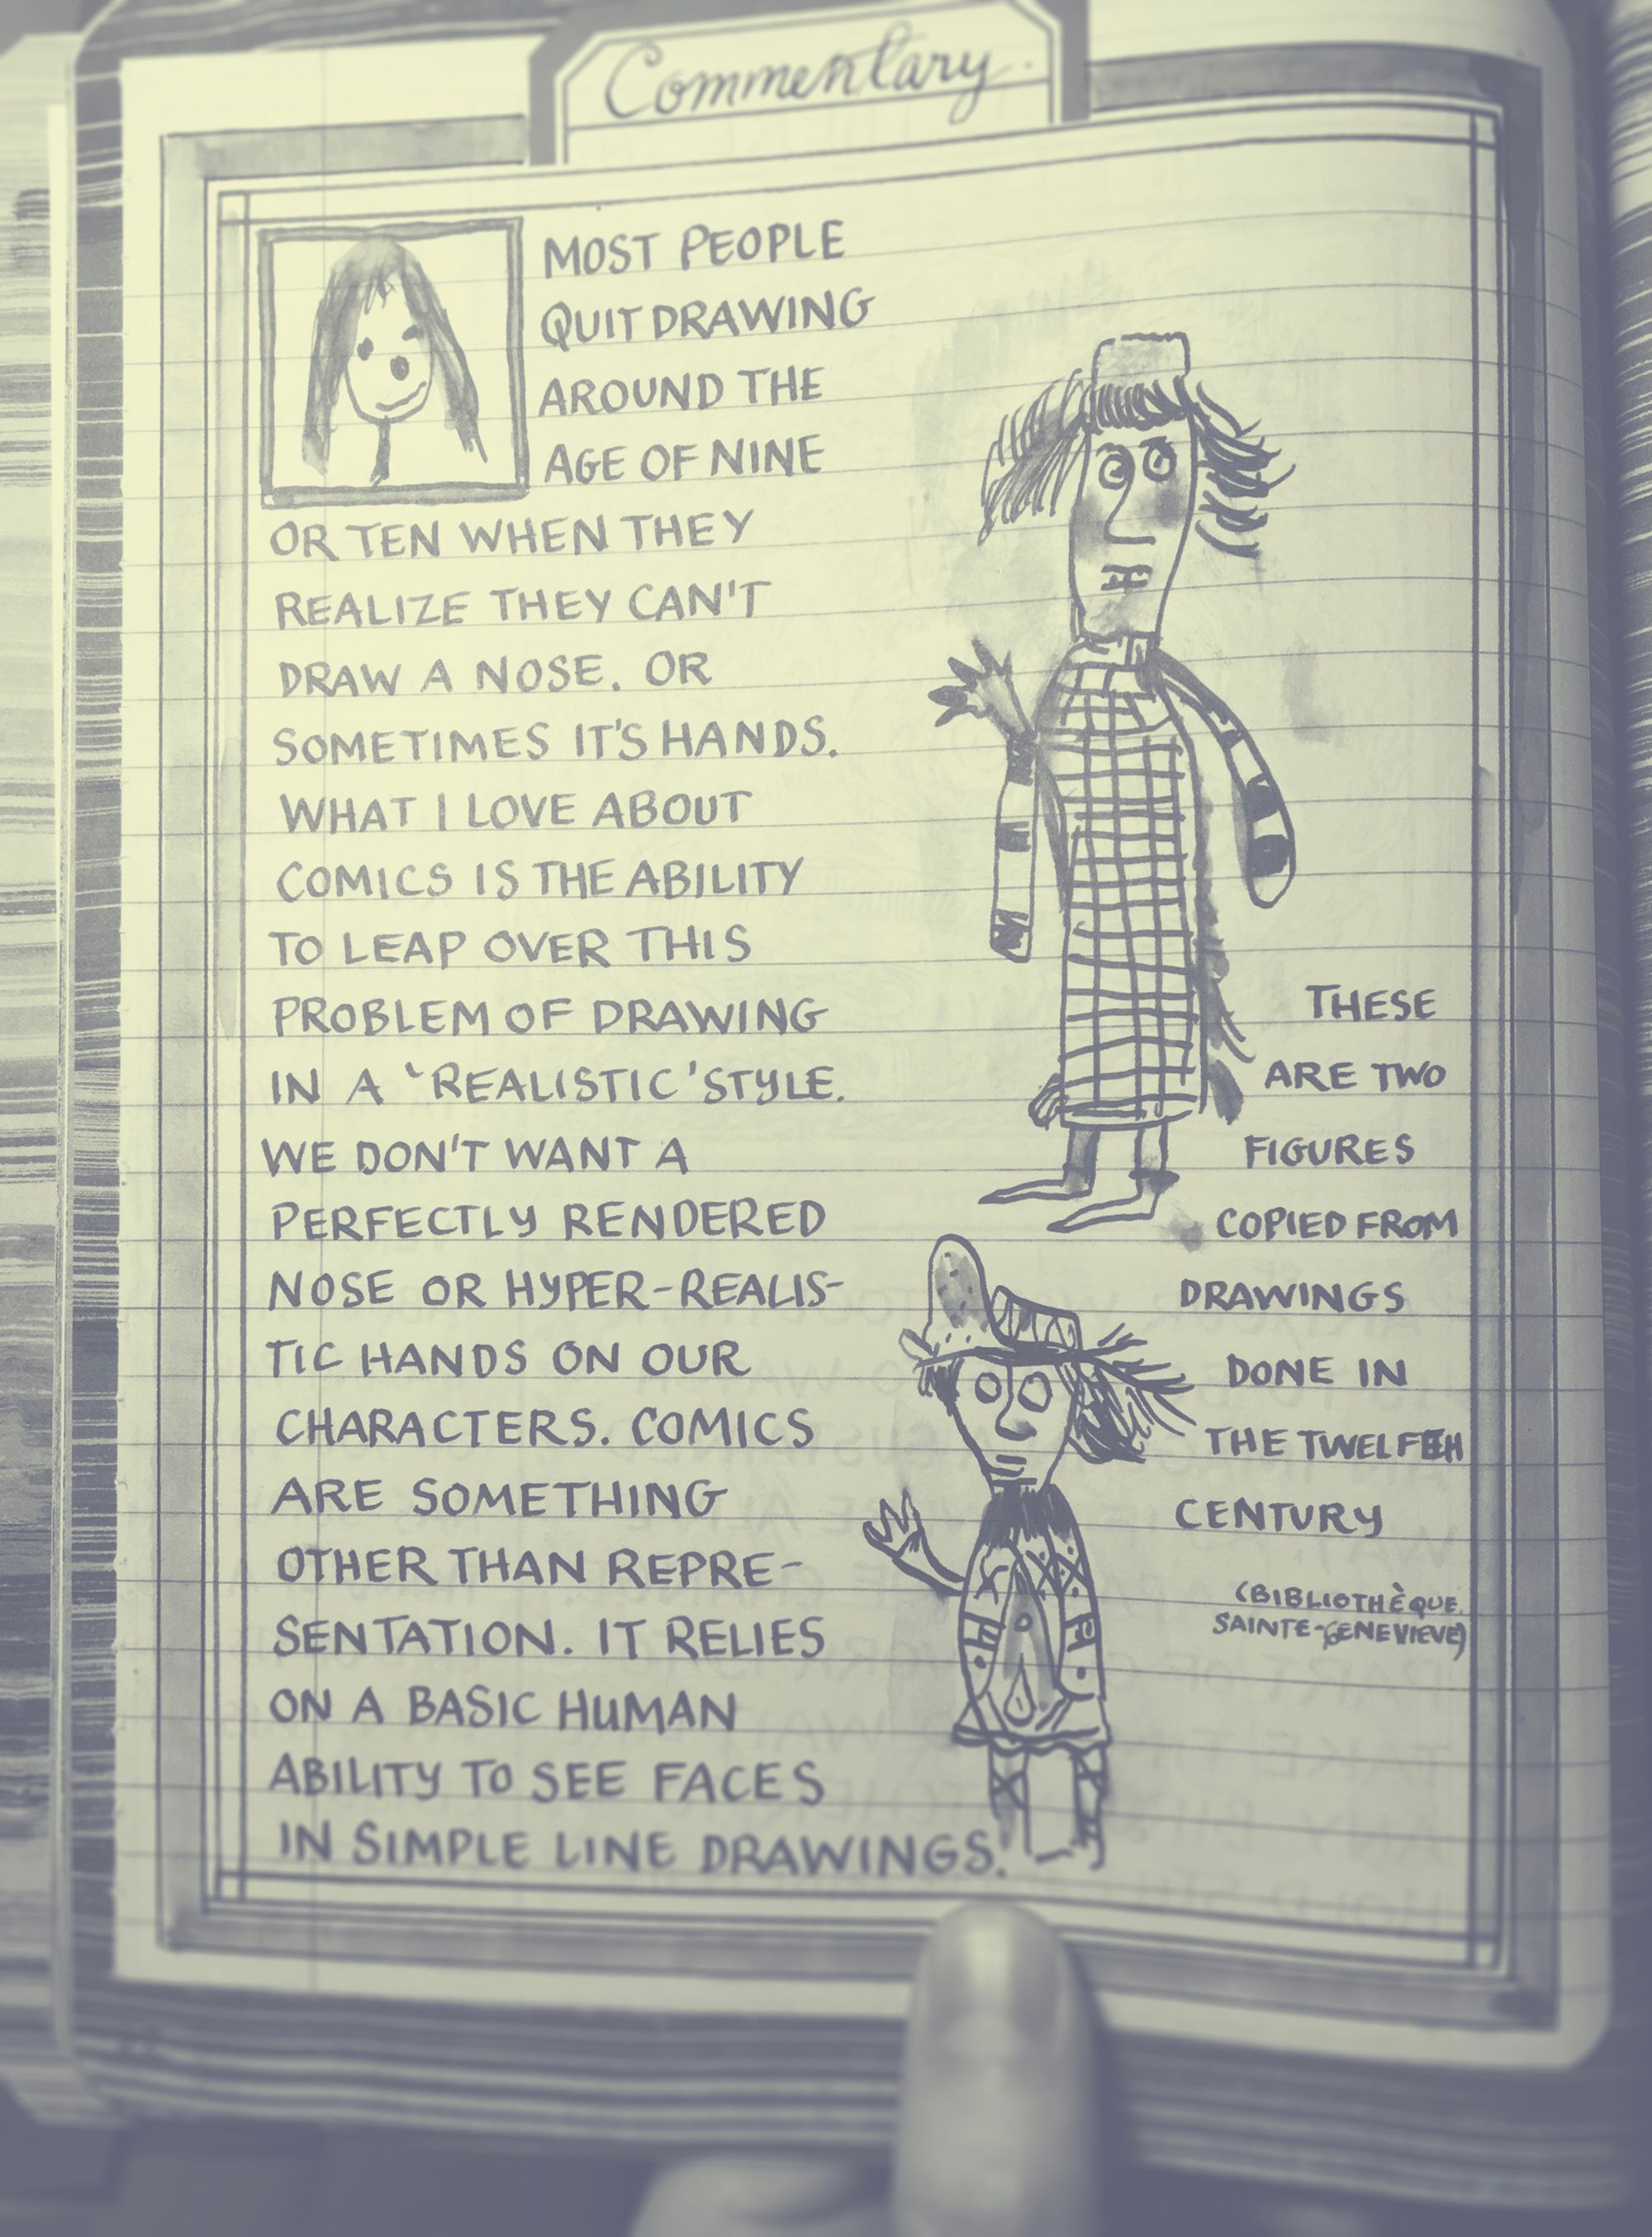 Commentary.
MOST PEOPLE
QUIT DRAWING
AROUND THE
AGE OF NINE
OR TEN WHEN THEY
REALIZE THEY CAN'T
DRAW A NOSE. OR
SOMETIMES IT'S HANDS.
WHAT I LOVE ABOUT
COMICS IS THE ABILITY
TO LEAP OVER THIS
PROBLEM OF DRAWING
IN A 'REALISTIC' STYLE.
WE DON'T WANT A
PERFECTLY RENDERED
NOSE OR HYPER-REALIS-
TIC HANDS ON OUR
CHARACTERS. COMICS
ARE SOMETHING
OTHER THAN REPRE-
SENTATION. IT RELIES
ON A BASIC HUMAN
ABILITY TO SEE FACES
IN SIMPLE LINE DRAWINGS.
THESE
ARE TWO
FIGURES
COPIED FROM
DRAWINGS
DONE IN
THE TWELFTH
CENTURY
(BIBLIOTHÈQUE
SAINTE-GENEVIEVE)